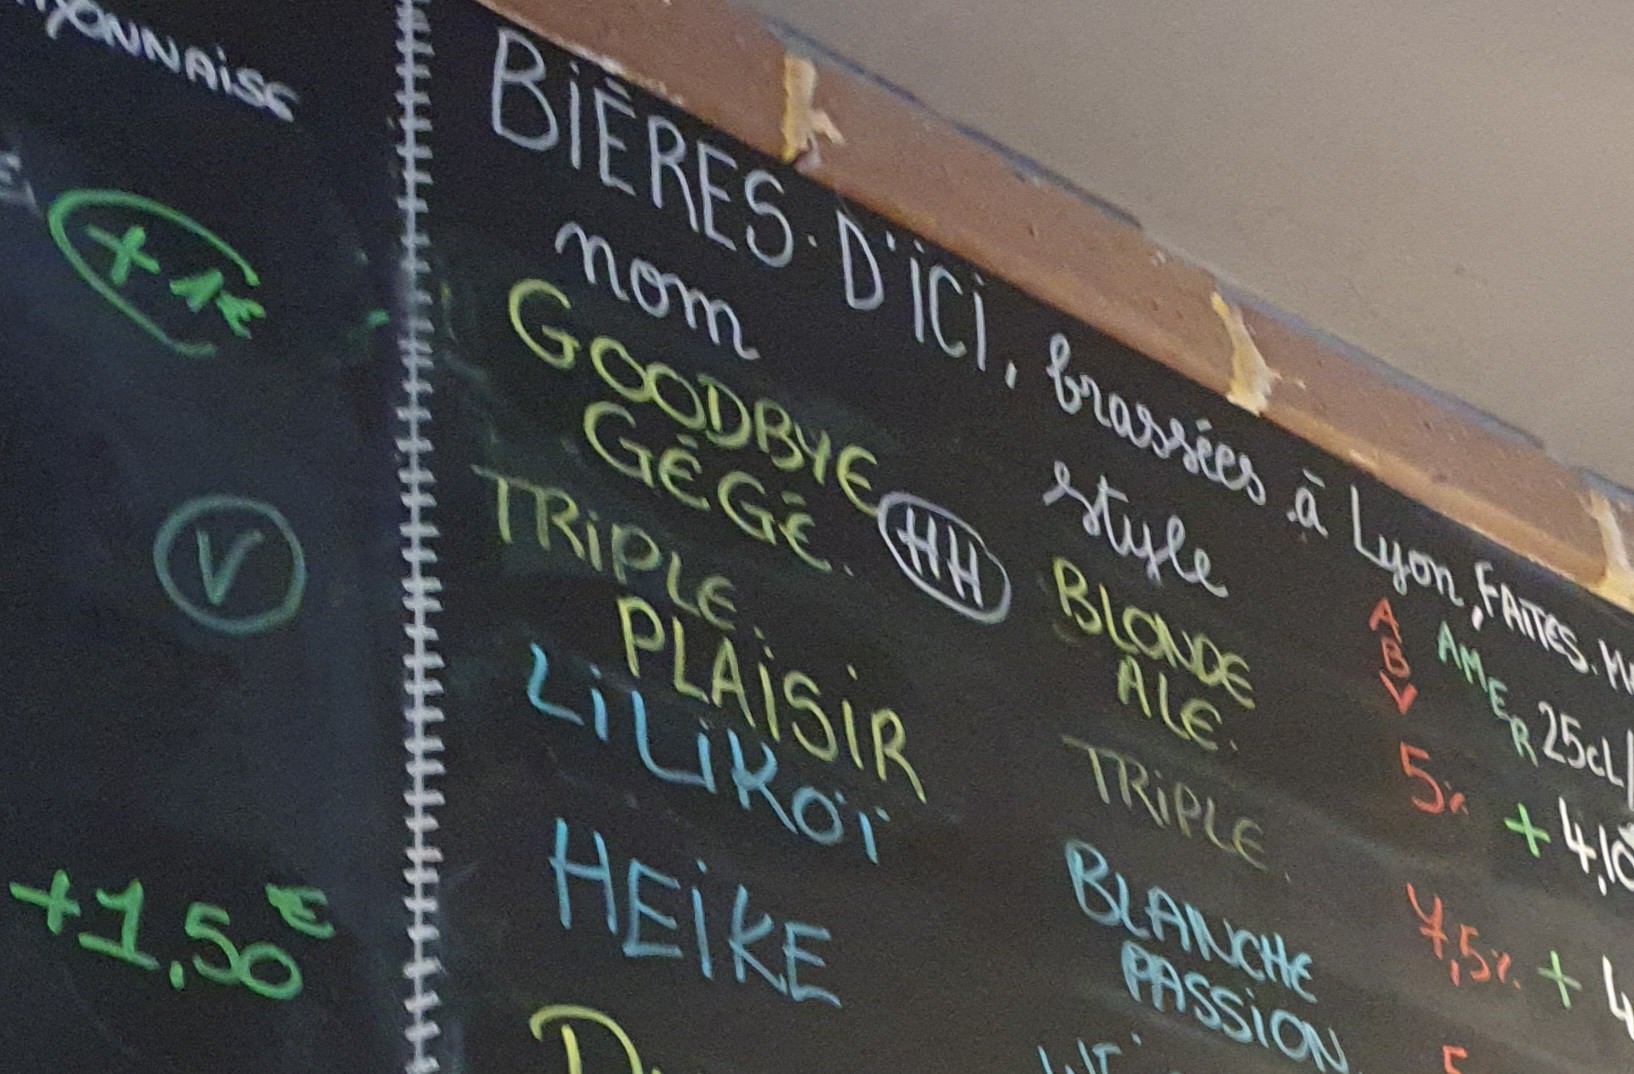 YONNAISE
+1€
V
+1,50€
BIÈRES D'ICI, brassées à Lyon, FAITES
nom style ABV AMER 25cL/
GOODBYE GÉGÉ HH BLONDE ALE 5% + 4,10
TRIPLE PLAISIR TRIPLE 7,5% + 4
LILIKOÏ BLANCHE PASSION 5
HEIKE